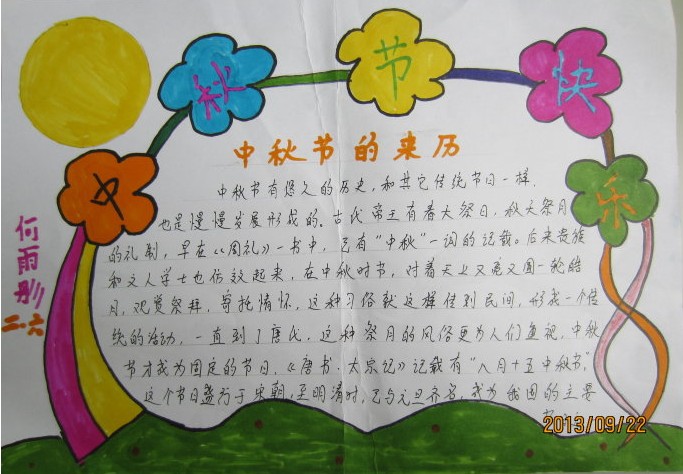 中秋节快乐
中秋节的来历
何雨彤
二.六
中秋节有悠久的历史,和其它传统节日一样,
也是慢慢发展形成的。古代帝王有春天祭日,秋天祭月
的礼制,早在《周礼》一书中,已有“中秋”一词的记载。后来贵族
和文人学士也仿效起来,在中秋时节,对着天上又亮又圆一轮皓
月,观赏祭拜,寄托情怀,这种习俗就这样传到民间,形成一个传
统的活动,一直到了唐代,这种祭月的风俗更为人们重视,中秋
节才成为固定的节日,《唐书·太宗记》记载有“八月十五中秋节”,
这个节日盛行于宋朝,至明清时,已与元旦齐名,成为我国的主要
2013/09/22